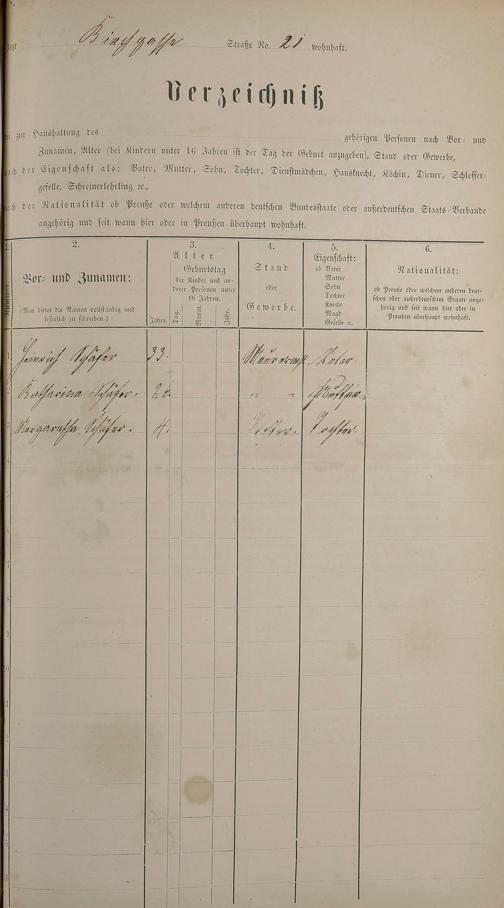 Kirchgasse Straße No. 21 wohnhaft.
Verzeichniß
zur Haushaltung des gehörigen Personen nach Vor- und
Zunamen, Alter (bei Kindern unter 16 Jahren ist der Tag der Geburt anzugeben), Stand oder Gewerbe,
nach der Eigenschaft als: Vater, Mutter, Sohn, Tochter, Dienstmädchen, Hausknecht, Köchin, Diener, Schlosser-
geselle, Schreinerlehrling ꝛc.,
nach der Nationalität ob Preuße oder welchem anderen deutschen Bundesstaate oder außerdeutschen Staats-Verbande
angehörig und seit wann hier oder in Preußen überhaupt wohnhaft.
1. 2. 3. 4. 5. 6.
Nummer.
Vor- und Zunamen:
(Man bittet die Namen vollständig und
leserlich zu schreiben.)
Alter
Geburtstag
der Kinder und an-
derer Personen unter
16 Jahren.
Jahre. Tag. Monat. Jahr.
Stand
oder
Gewerbe.
Eigenschaft:
ob Vater
Mutter
Sohn
Tochter
Knecht
Magd
Geselle ꝛc.
Nationalität:
ob Preuße oder welchem anderen deut-
schen oder außerdeutschen Staate ange-
hörig und seit wann hier oder in
Preußen überhaupt wohnhaft.
Heinrich Schäfer 33. Vater
Katharina Schäfer. " " Mutter.
Margaretha Schäfer. 4. Tochter. Tochter